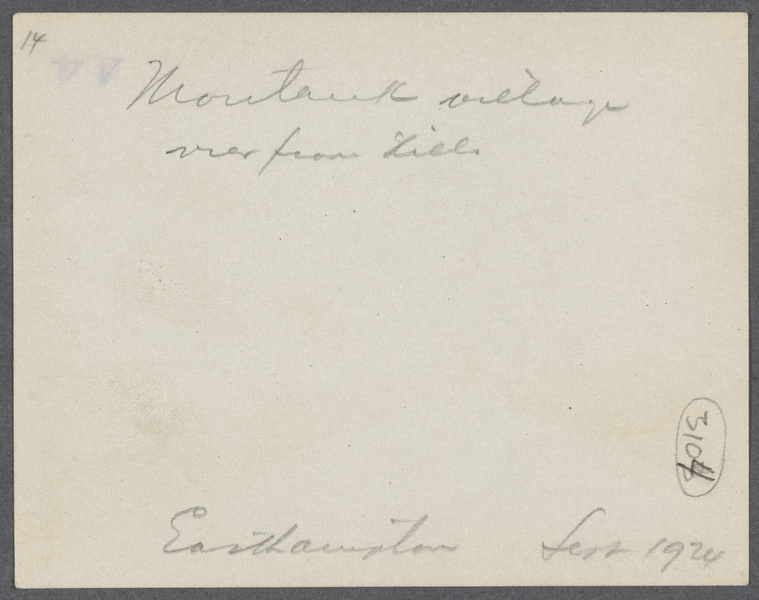 14
Montauk village
view from Hills
Easthampton Sept 1924